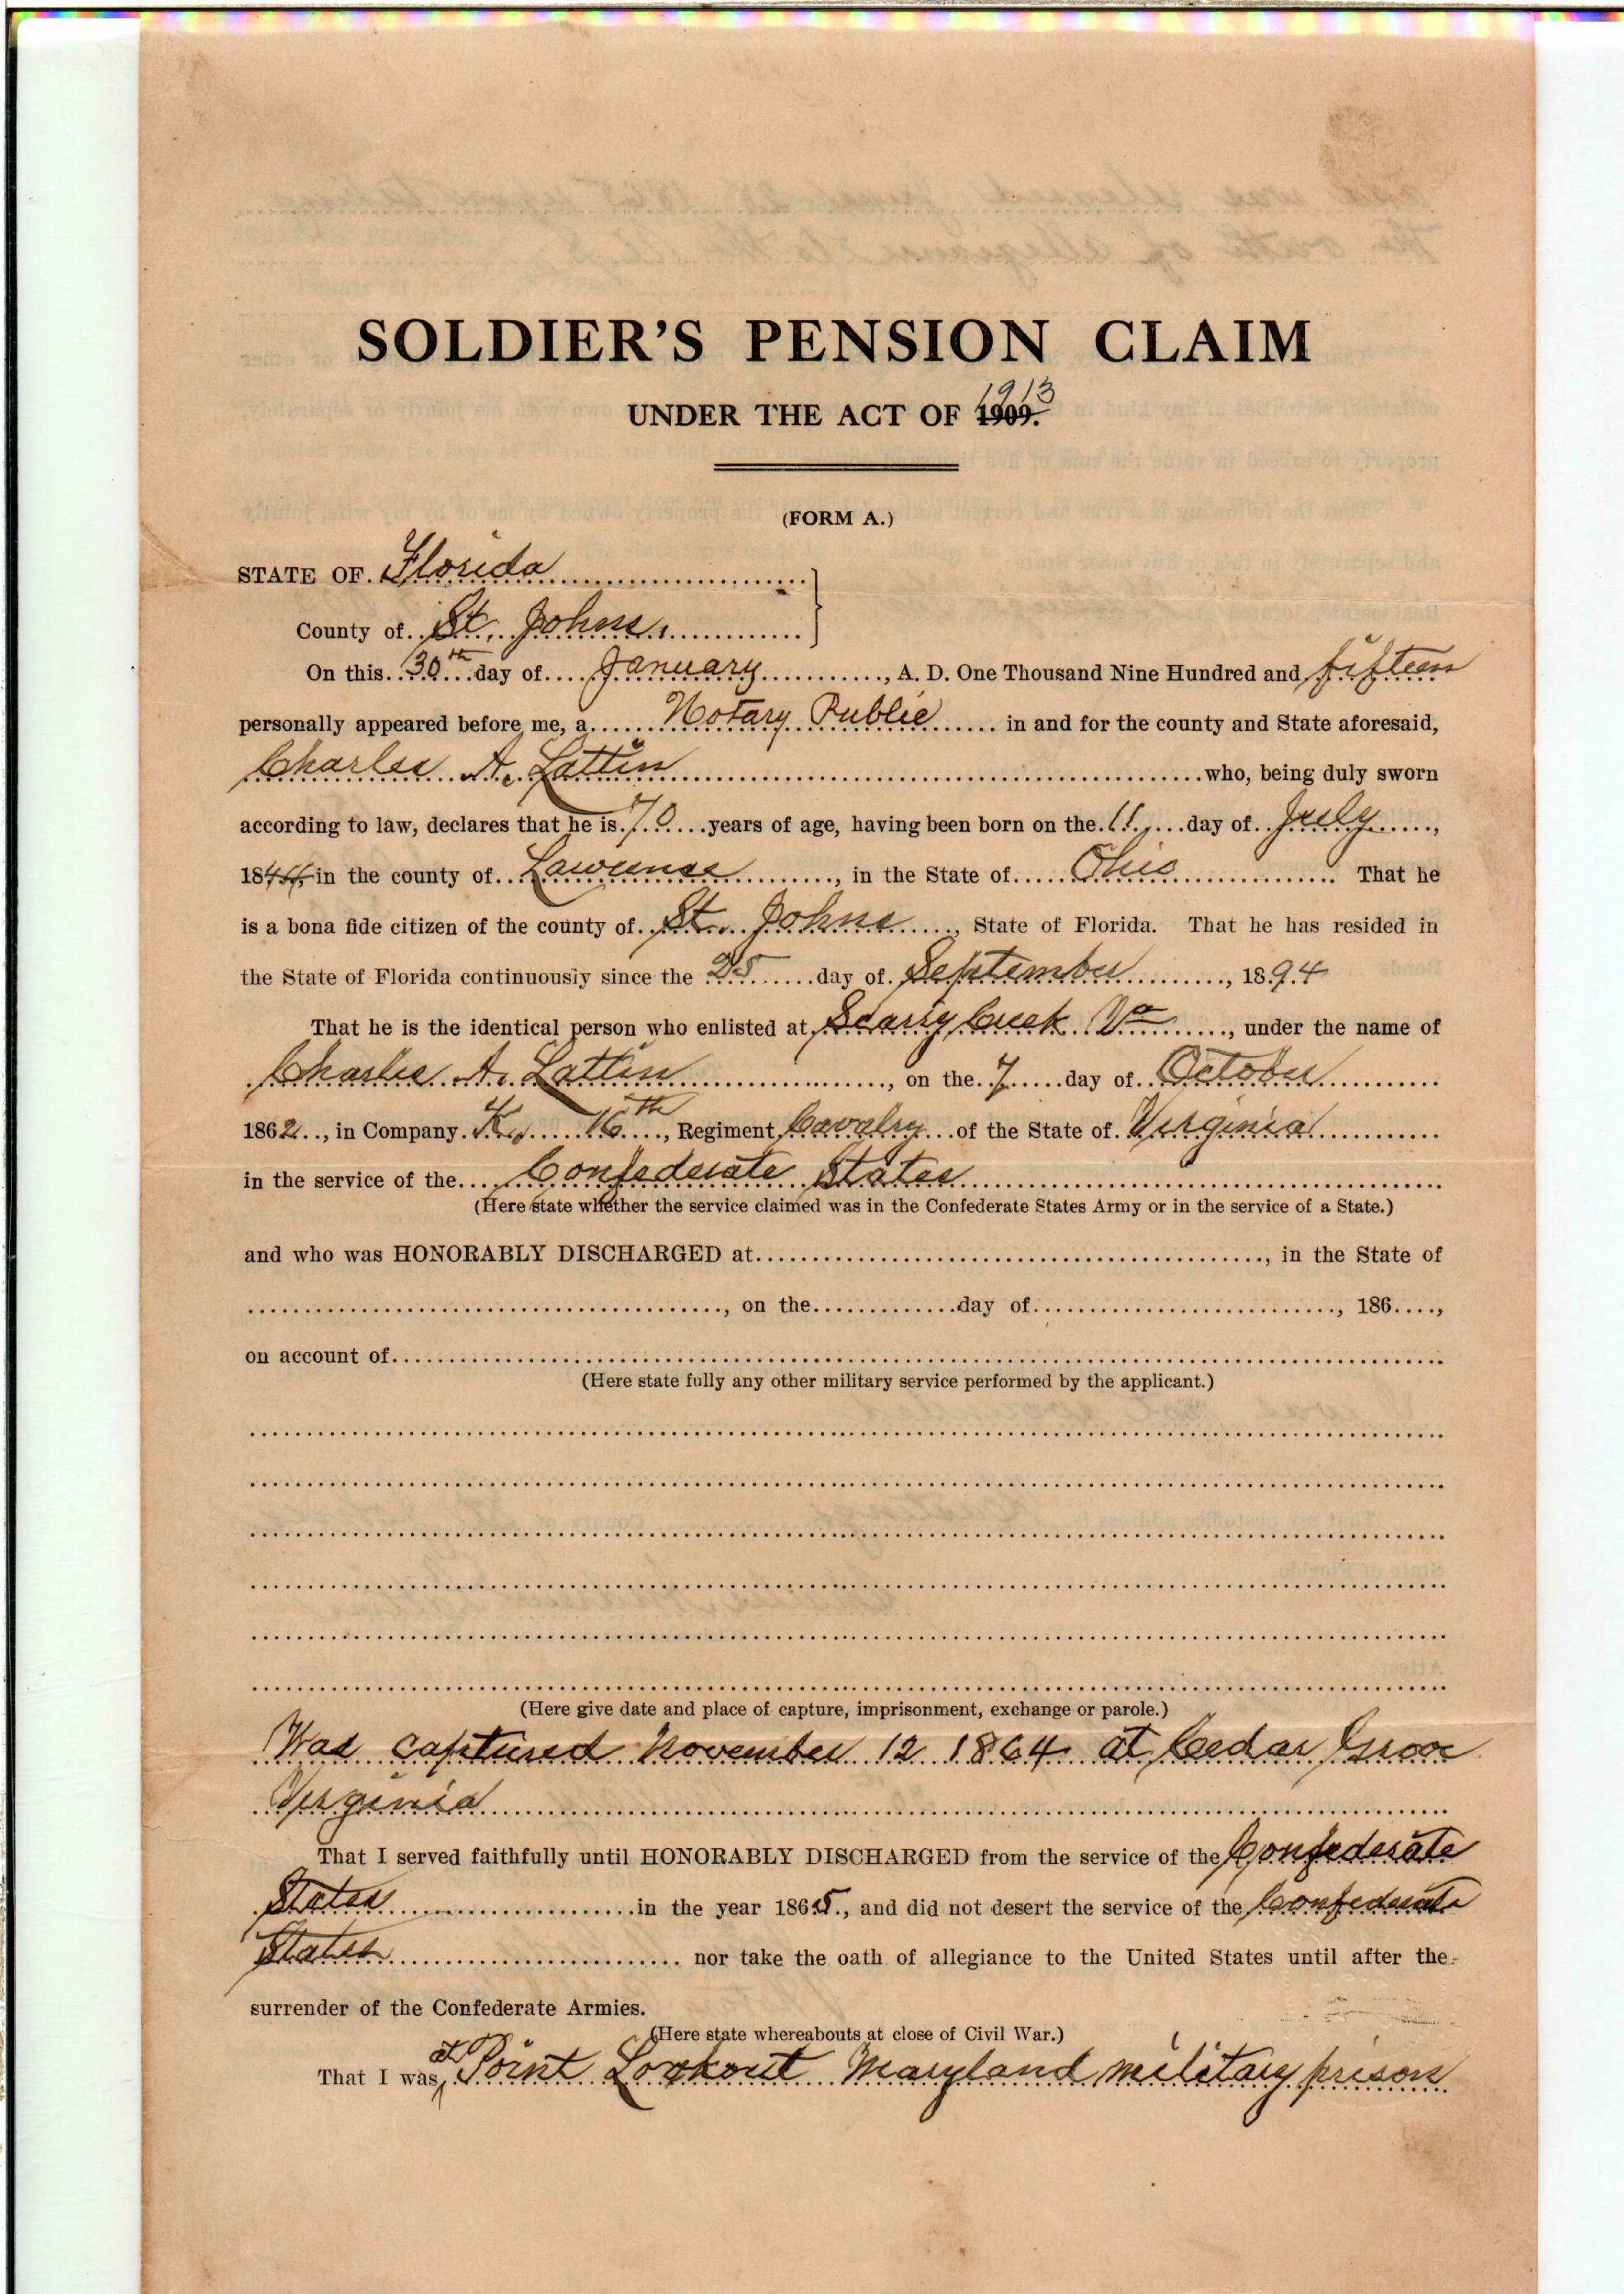 SOLDIER'S PENSION CLAIM
UNDER THE ACT OF 1909. 1913
(FORM A.)
STATE OF Florida
County of St. Johns
On this 30th day of January, A. D. One Thousand Nine Hundred and fifteen
personally appeared before me, a Notary Public in and for the county and State aforesaid,
Charles A. Lattin who, being duly sworn
according to law, declares that he is 70 years of age, having been born on the 11 day of July,
1844 in the county of Lawrence, in the State of Ohio That he
is a bona fide citizen of the county of St. Johns, State of Florida. That he has resided in
the State of Florida continuously since the 25 day of September, 1894
That he is the identical person who enlisted at Scarry Creek Va, under the name of
Charles A. Lattin, on the 7 day of October
1862, in Company K, 16th, Regiment Cavalry of the State of Virginia
in the service of the Confederate States
(Here state whether the service claimed was in the Confederate States Army or in the service of a State.)
and who was HONORABLY DISCHARGED at, in the State of
, on the day of, 186,
on account of
(Here state fully any other military service performed by the applicant.)
(Here give date and place of capture, imprisonment, exchange or parole.)
Was captured November 12 1864 at Cedar Grove
Virginia
That I served faithfully until HONORABLY DISCHARGED from the service of the Confederate
States in the year 1865, and did not desert the service of the Confederate
States nor take the oath of allegiance to the United States until after the
surrender of the Confederate Armies.
(Here state whereabouts at close of Civil War.)
That I was at Point Lookout Maryland military prison